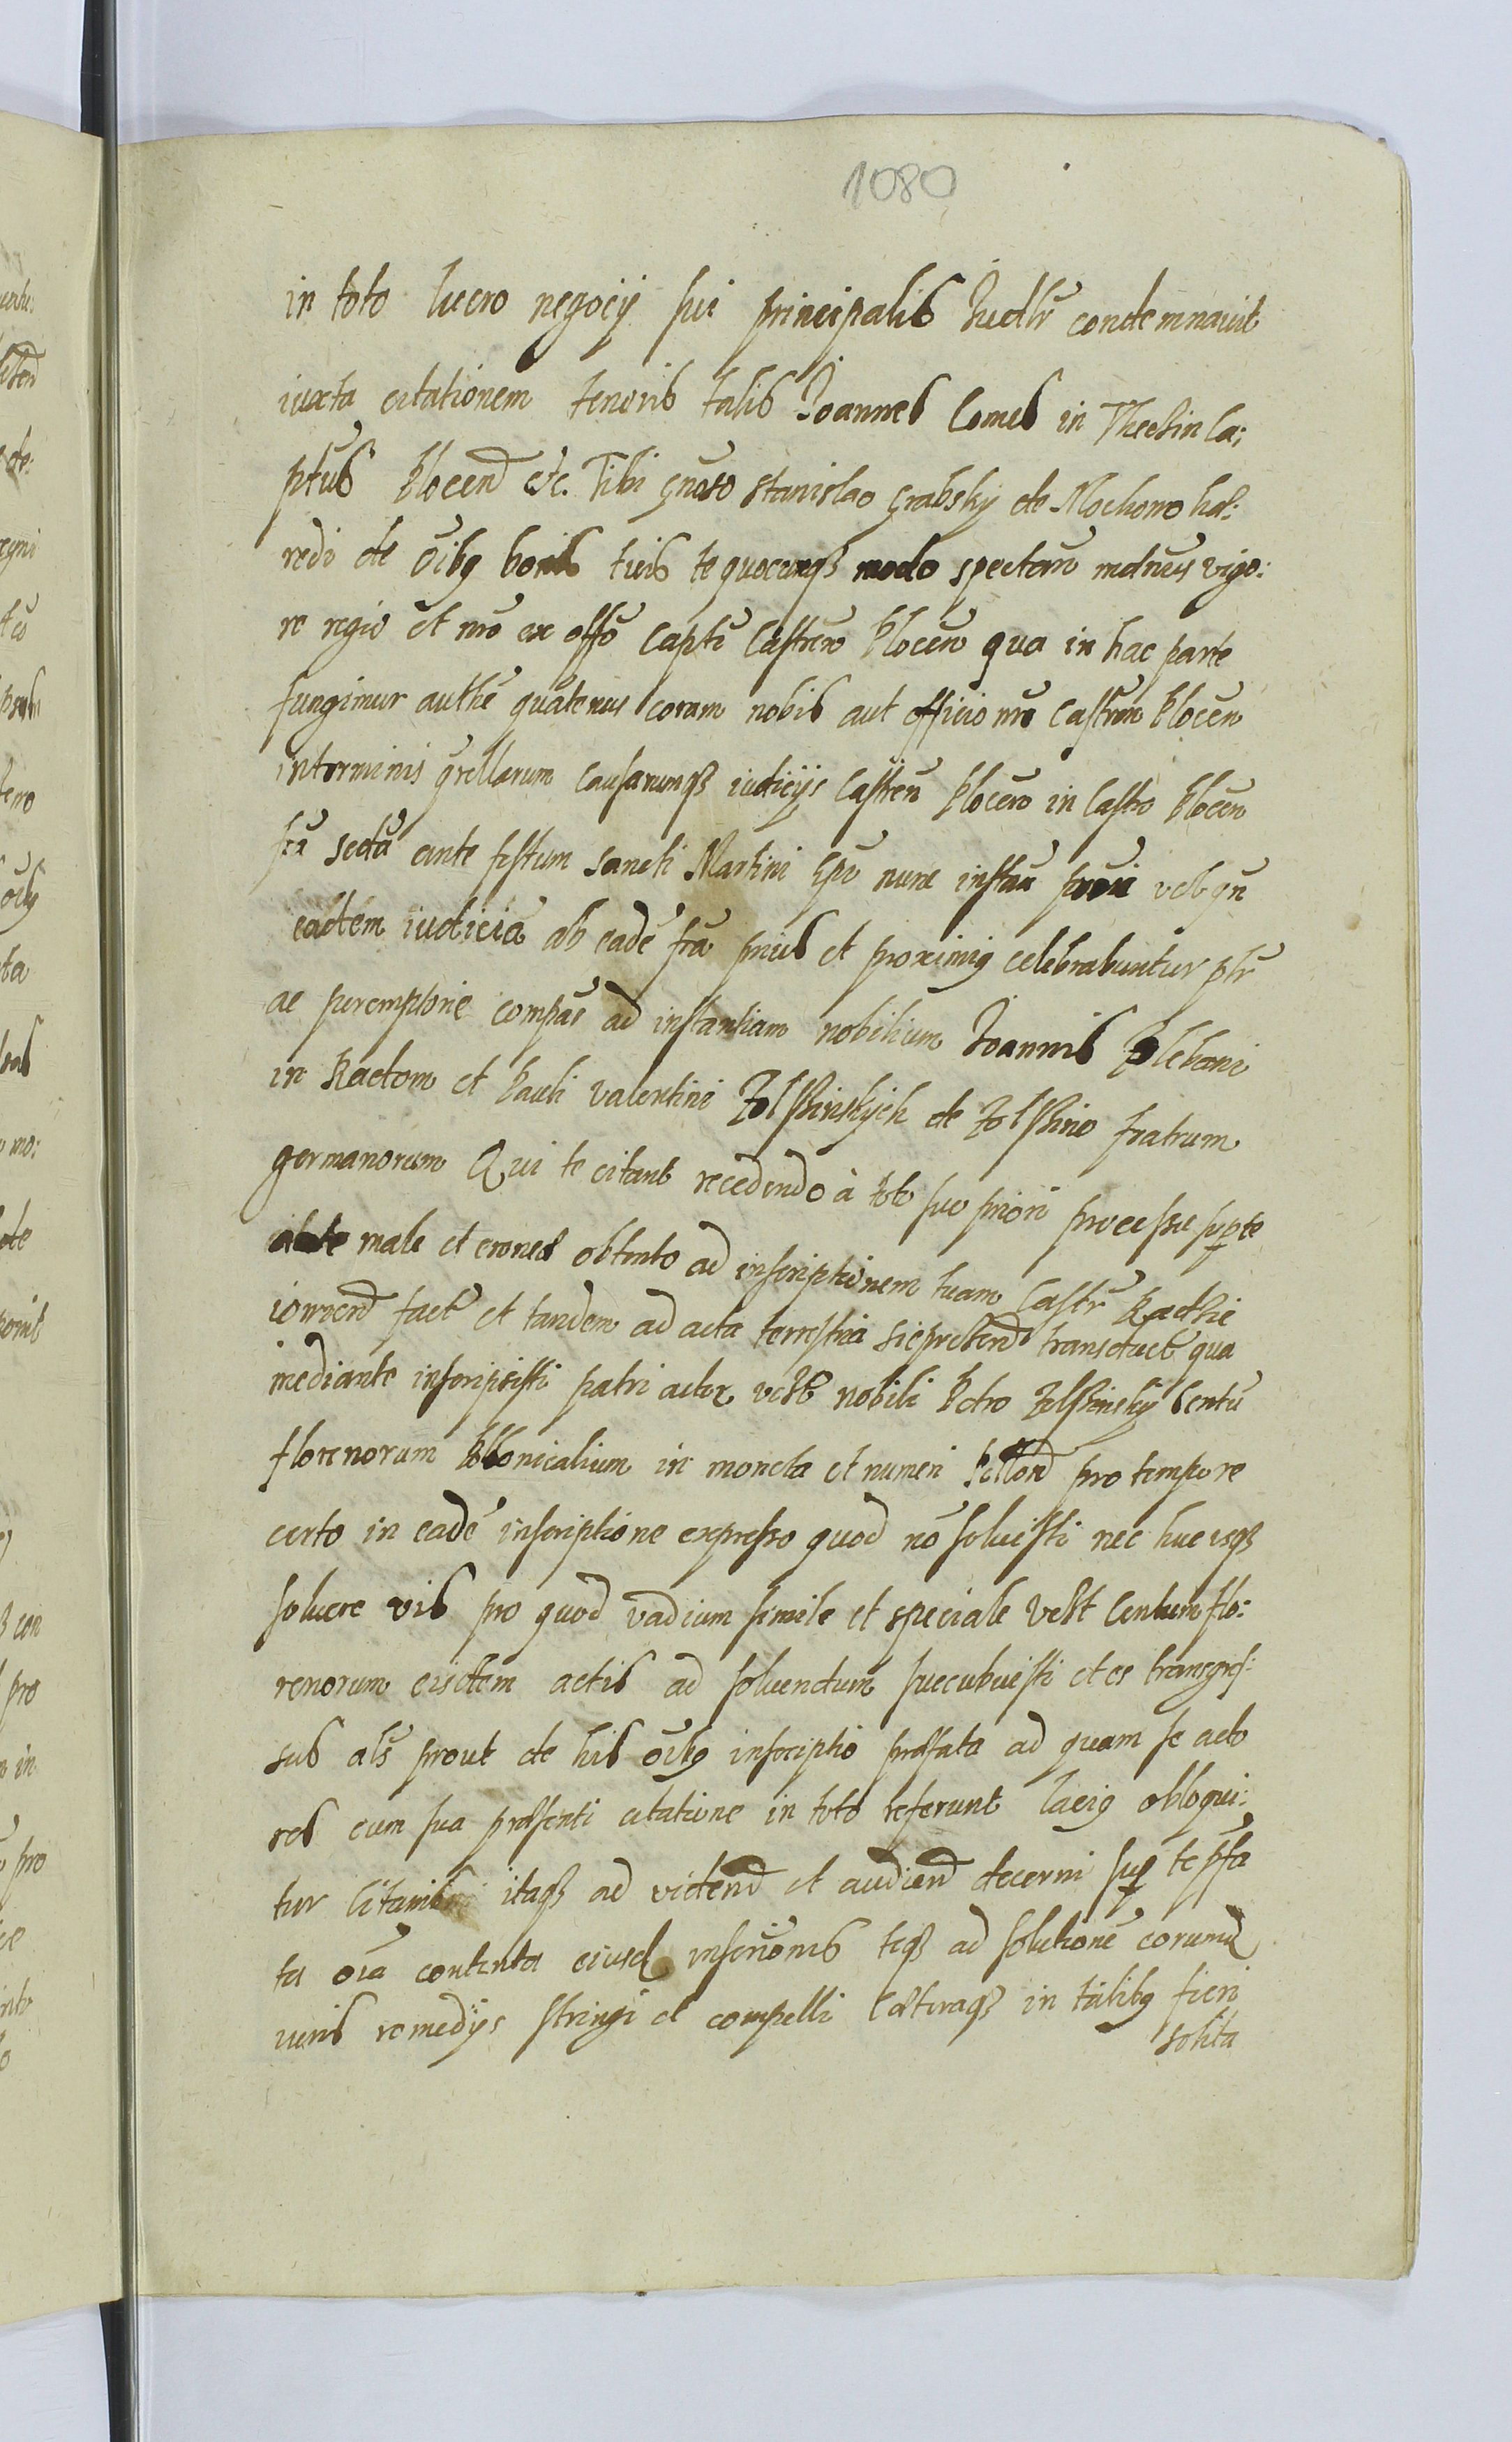 1080
in toto lucro negocÿ sui principalis Iudlr condemnauit
iuxta citationem tenoris talis Ioannes Comes in Thechin Ca:
ptus Plocen̄ etc. Tibi Gnōso Stanislao Grabskÿ de Mochowo hæ:
redi de oībꝯ bonis tuis te quocunqꝫ modo spectan̄ mdnūs vigo:
re regio et nrō ex offō Captī Castren̄ Plocen̄ qua in hac parte
fungimur authē quātenus coram nobis aut officio nrō Castren̄ Plocen̄
in terminis q̄rellarum causarumqꝫ iudicÿs Castren̄ Plocen̄ in Castro Plocen̄
fra secda ante festum Sancti Martini Epī nunc instan̄ prōxi vel qn̄
eadem iudicia ab eadē frā prius et proximiꝯ celebrabuntur ptr̄
ac peremptorie compās ad instantiam nobilium Ioannis Plebani
in Raetom et Pauli Valentini Zolskinskÿch de Zolskino fratrum
germanorum Qui te citant recedendo à toto suo priori processu supte
male et erroneé obtento ad inscriptionem tuam Castr̄ Radzie
iowien̄ fact̄ et tandem ad acta terrestria Sieprcen̄ transduct̄ qua
mediante inscripsisti patri actoꝝ vedt̄ nobili Petro Zolskinskÿ Centū
florenorum Pollonicalium in moneta et numeri Pollon̄ pro tempore
certo in eadē inscriptione expresso quod nō soluisti nec huc usqꝫ
soluere vis pro quod vadium simile et speciale vedt Centum flo:
renorum eisdem actis ad soluendum succubuisti et es transgres:
sus als̄ prout de his oībꝯ inscriptio præfata ad quam se acto
res cum sua præsenti citatione in toto referunt laciꝯ obloqui:
tur Citaris itaqꝫ ad viden̄ et audien̄ decerni sup̱ te p̄fa
ta oīa contenta eiusd̄ inscrīonis teqꝫ ad solutionē eorund̄
iuris remedÿs stringi et compelli Cæteraqꝫ in talibꝯ fieri
solita